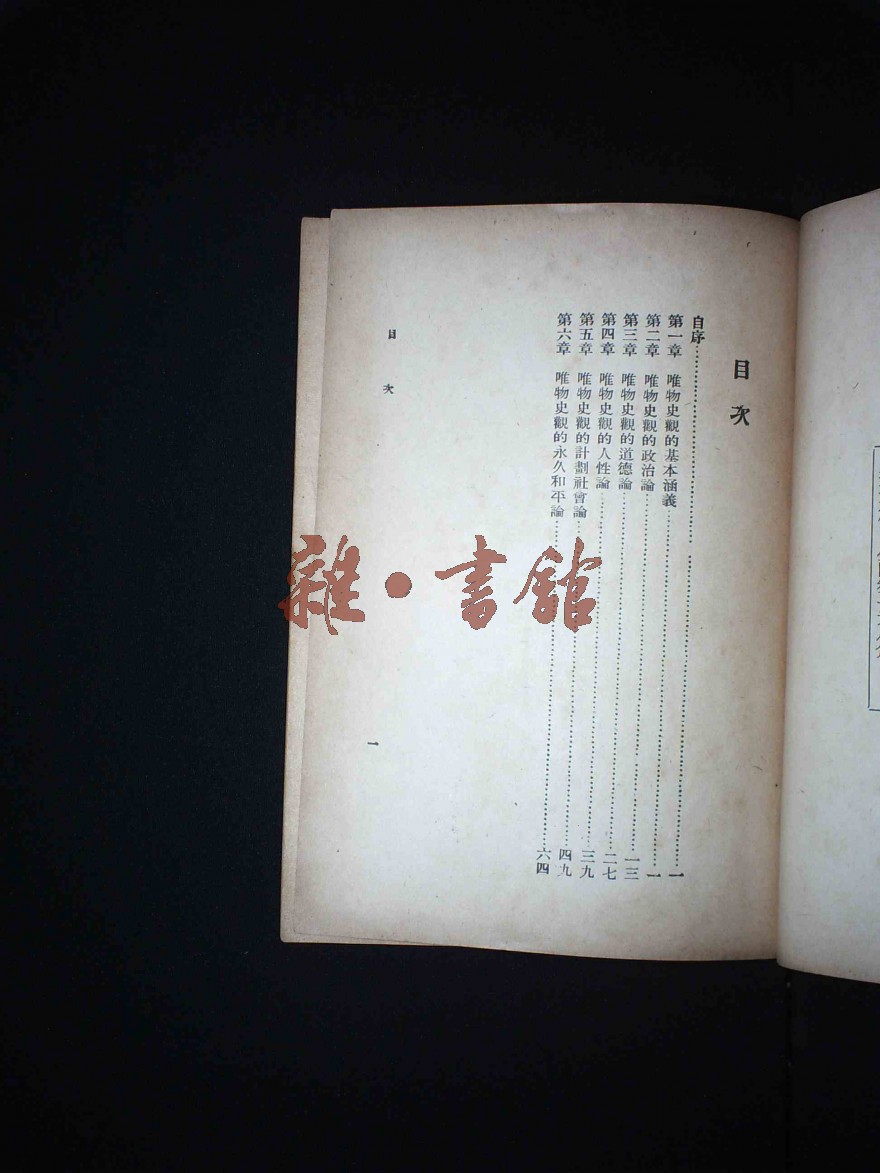 目次
自序……一
第一章 唯物史觀的基本涵義……一
第二章 唯物史觀的政治論……一三
第三章 唯物史觀的道德論……二七
第四章 唯物史觀的人性論……三九
第五章 唯物史觀的計劃社會論……四九
第六章 唯物史觀的永久和平論……六四
目次
一
雜·書館